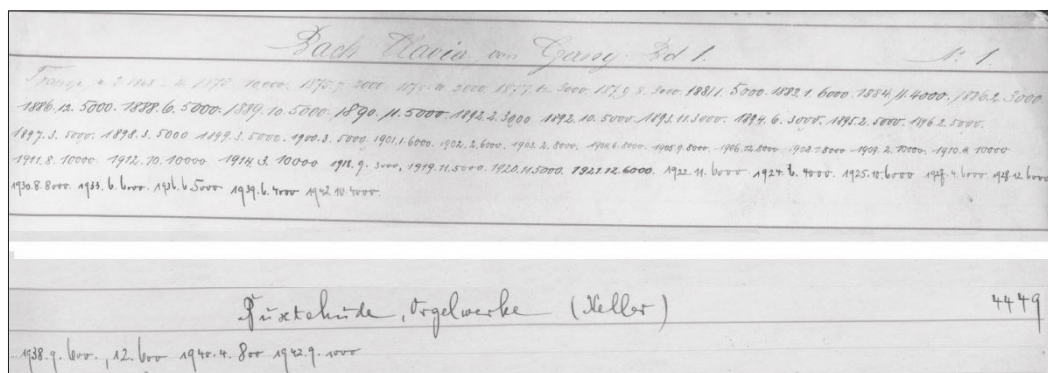 Bach Klavier von Czerny. Bd 1. No 1.
1875.9.2000. 1877.12.3000. 1879.8.3000. 1881.1.5000. 1882.1.6000. 1884.11.4000. 1886.2.3000.
1886.12.5000. 1888.6.5000. 1889.10.5000. 1890.11.5000. 1892.2.3000 1892.10.5000. 1893.11.3000. 1894.6.3000. 1895.2.5000. 1896.2.5000.
1897.3.5000. 1898.3.5000 1899.3.5000. 1900.3.5000. 1901.1.6000. 1902.2.6000. 1909.2.10000. 1910.10000
1911.8.10000 1912.10.10000 1914.3.10000 1918.9.3000, 1919.11.5000. 1920.11.5000. 1921.12.6000. 1922.11.6000 1924.6.4000. 1925.10.6000 1928.12.6000
1930.8.8000. 1933.6.6000. 1936.6.5000 1939.6.4000 1942.10.4000.
Buxtehude, Orgelwerke (Keller) 4449
1938.9.600., 12.600 1940.4.800 1942.9.1000